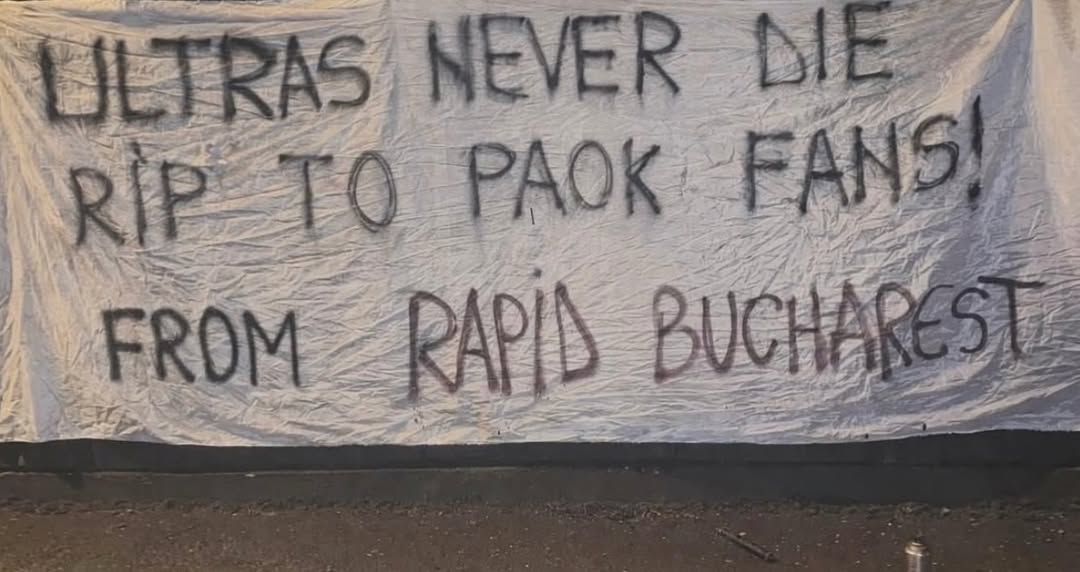 ULTRAS NEVER DIE
RİP TO PAOK FANS!
FROM RAPİD BUCHAREST